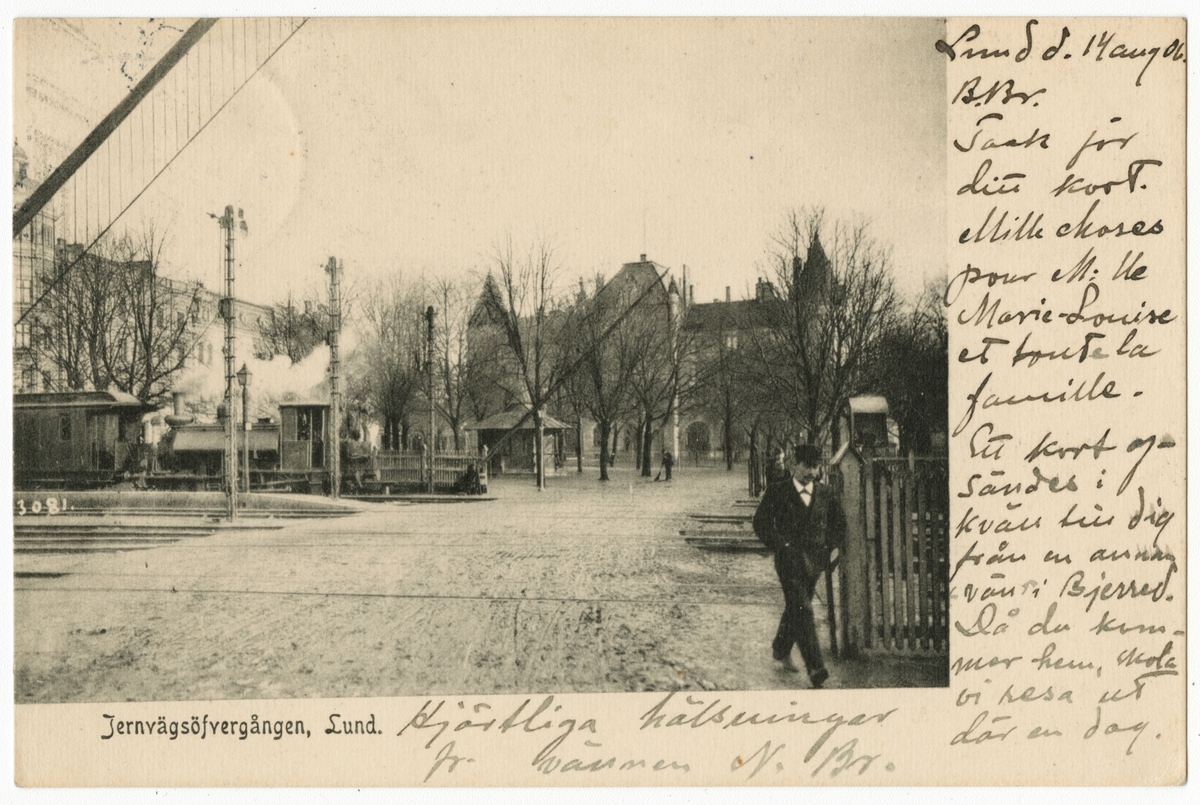 Lund d. 14 aug 06.
B.Br.
Tack för
ditt kort.
Mille choses
pour M:lle
Marie-Louise
et toute la
famille.
Ett kort af-
sändes i
kväll till dig
från en annan
vän i Bjerred.
Då du kom-
mer hem, skola
vi resa ut
där en dag.
3081.
Jernvägsöfvergången, Lund.
Hjärtliga hälsningar
fr. vännen N. Br.